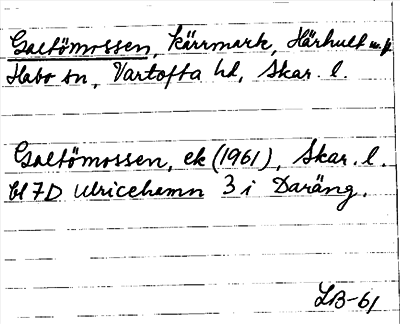 Galtömossen, kärrmark, Härhult m.fl.
Habo sn, Vartofta hd, Skar. l.
Galtömossen, ek (1961), Skar. l.
bl 7D Ulricehamn 3 i Daräng.
LB-61